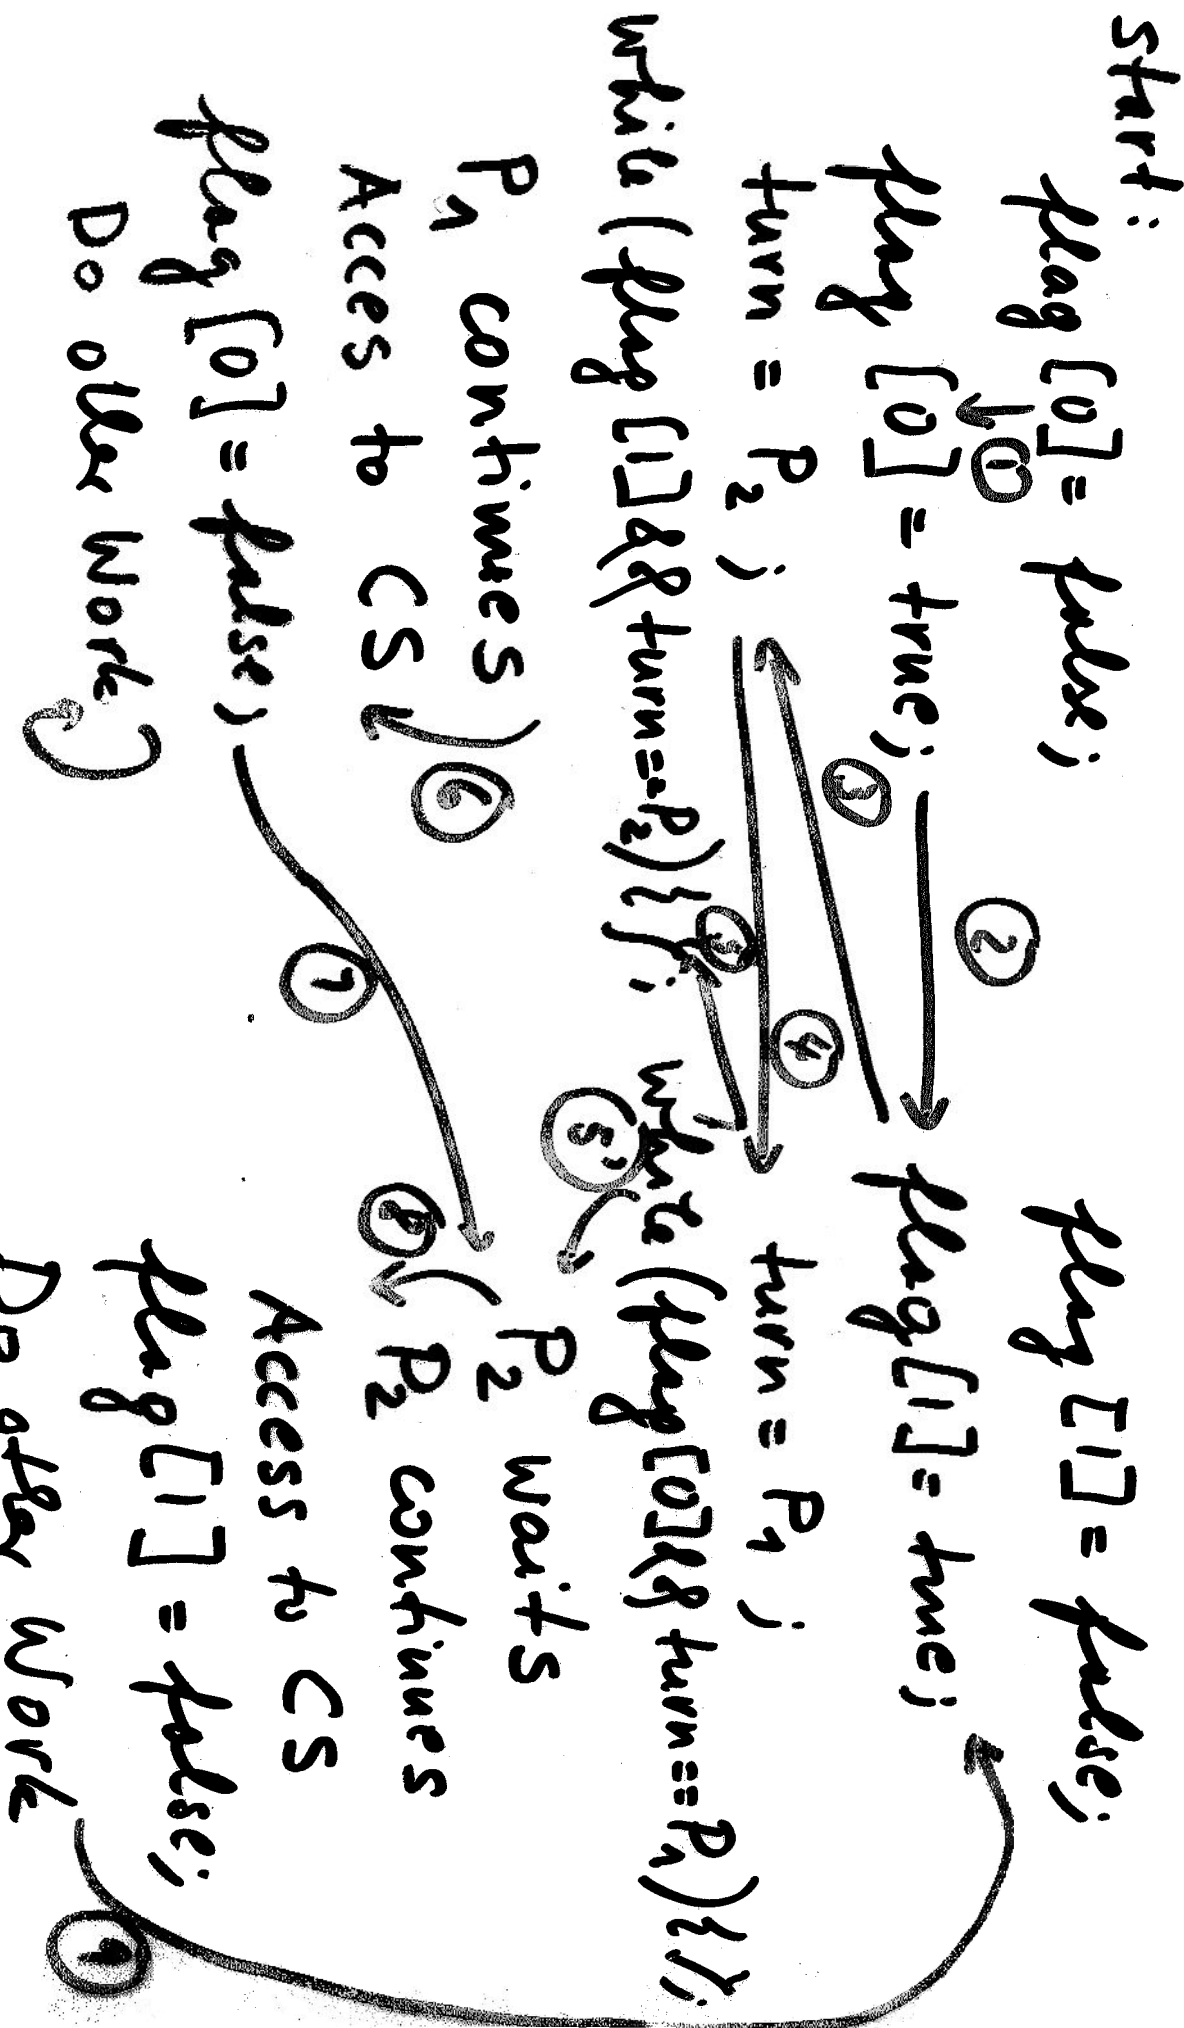 start:
flag [0] = false;
①
flag [0] = true;
turn = P2;
while (flag [1] && turn == P2) {};
P1 continues
Acces to CS
flag [0] = false;
Do other Work
②
③
④
⑤
⑥
⑦
flag [1] = false;
flag [1] = true;
turn = P1;
while (flag [0] && turn == P1) {};
⑤'
P2 waits
⑧
P2 continues
Access to CS
flag [1] = false;
Do other Work
⑨